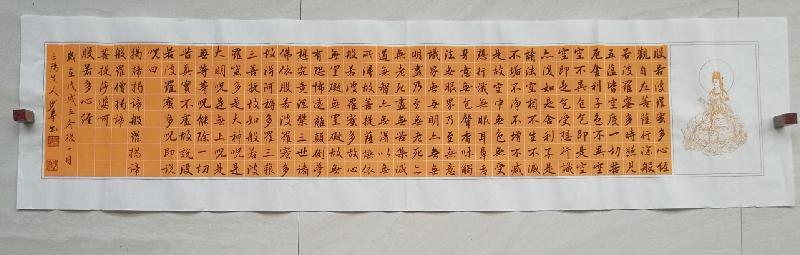 般若波羅蜜多心經
觀自在菩薩行深般
若波羅蜜多時照見
五蘊皆空度一切苦
厄舍利子色不異空
空不異色色即是空
空即是色受想行識
亦復如是舍利子是
諸法空相不生不滅
不垢不淨不增不減
是故空中無色無受
想行識無眼耳鼻舌
身意無色聲香味觸
法無眼界乃至無意
識界無無明亦無無
明盡乃至無老死亦
無老死盡無苦集滅
道無智亦無得以無
所得故菩提薩埵依
般若波羅蜜多故心
無罣礙無罣礙故無
有恐怖遠離顛倒夢
想究竟涅槃三世諸
佛依般若波羅蜜多
故得阿耨多羅三藐
三菩提故知般若波
羅蜜多是大神呪是
大明呪是無上呪是
無等等呪能除一切
苦真實不虛故說般
若波羅蜜多呪即說
呪曰
揭諦揭諦般羅揭諦
般羅僧揭諦
菩提薩婆訶
般若多心經
歲在戊戌年一月